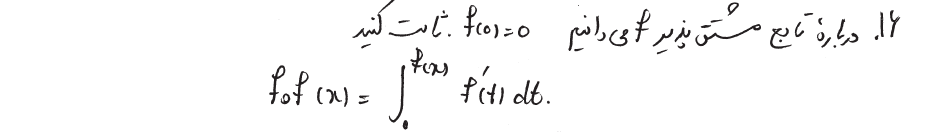 ۱۶. دربارهٔ تابع مشتق پذیر f می دانیم f(0)=0. ثابت کنید
fof(x) = ∫₀^{f(x)} f'(t) dt.